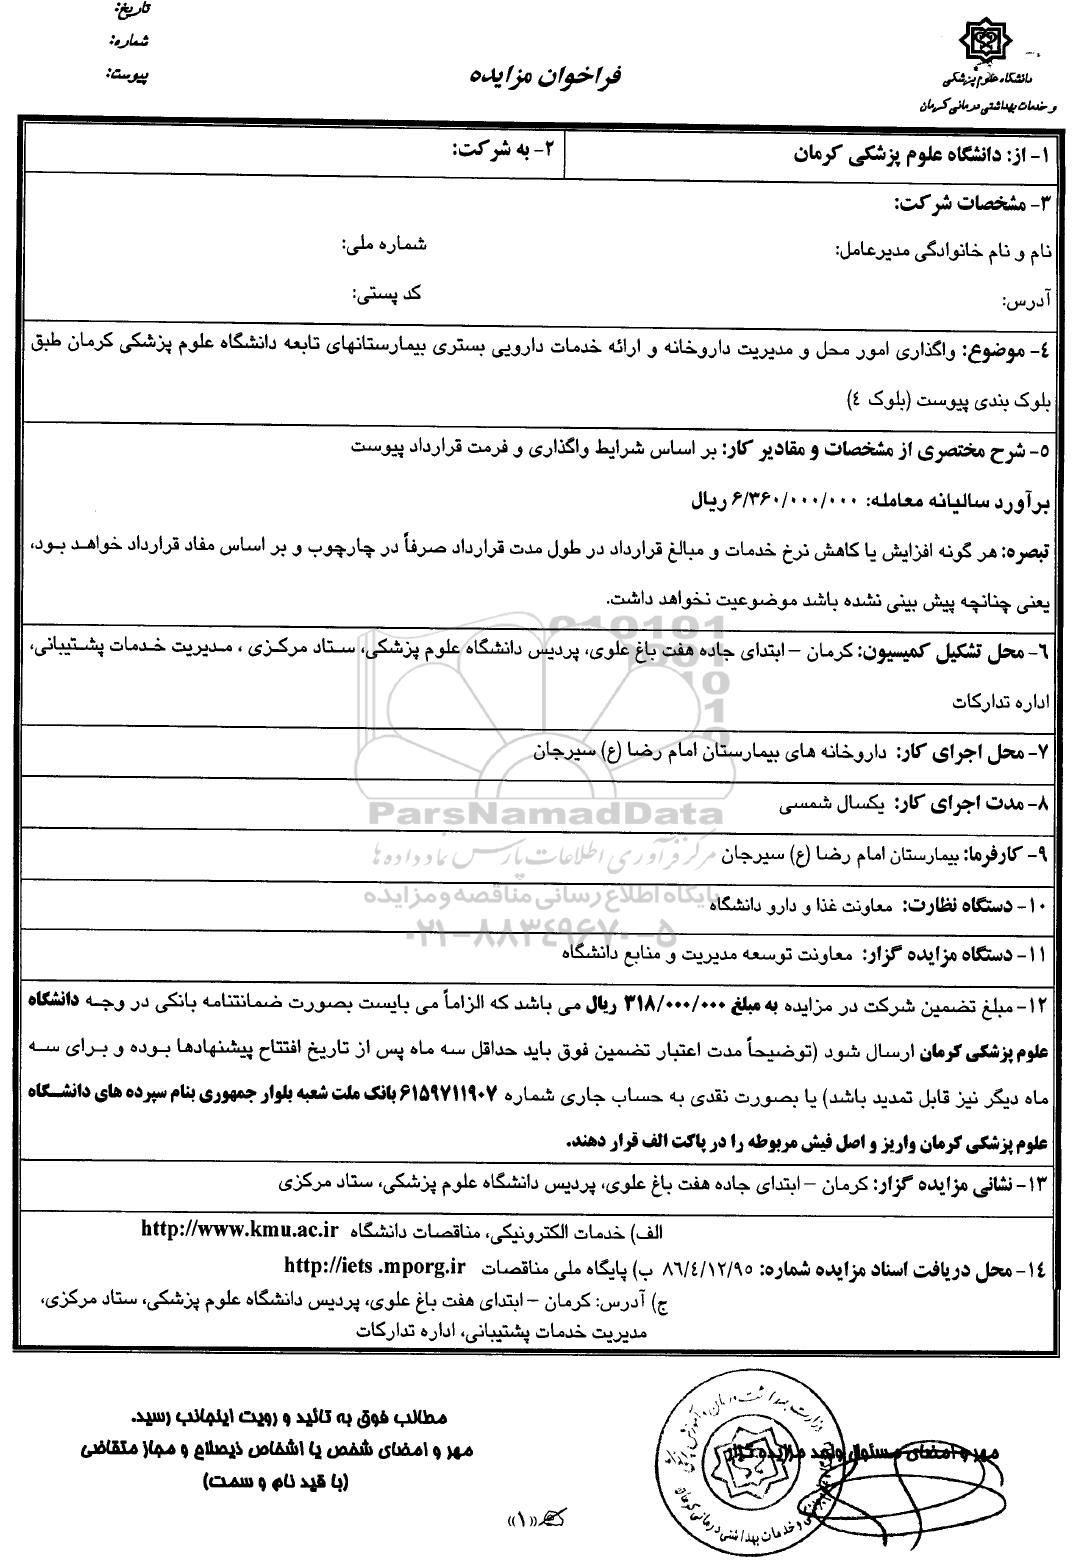 تاریخ:
شماره:
پیوست:
فراخوان مزایده
دانشگاه علوم پزشکی
و خدمات بهداشتی درمانی کرمان
۱- از: دانشگاه علوم پزشکی کرمان
۲- به شرکت:
۳- مشخصات شرکت:
نام و نام خانوادگی مدیرعامل:
شماره ملی:
آدرس:
کد پستی:
٤- موضوع: واگذاری امور محل و مدیریت داروخانه و ارائه خدمات دارویی بستری بیمارستانهای تابعه دانشگاه علوم پزشکی کرمان طبق
بلوک بندی پیوست (بلوک ٤)
۵- شرح مختصری از مشخصات و مقادیر کار: بر اساس شرایط واگذاری و فرمت قرارداد پیوست
برآورد سالیانه معامله: ۶/۳۶۰/۰۰۰/۰۰۰ ریال
تبصره: هر گونه افزایش یا کاهش نرخ خدمات و مبالغ قرارداد در طول مدت قرارداد صرفاً در چارچوب و بر اساس مفاد قرارداد خواهد بود،
یعنی چنانچه پیش بینی نشده باشد موضوعیت نخواهد داشت.
۶- محل تشکیل کمیسیون: کرمان – ابتدای جاده هفت باغ علوی، پردیس دانشگاه علوم پزشکی، ستاد مرکزی ، مدیریت خدمات پشتیبانی،
اداره تدارکات
۷- محل اجرای کار: داروخانه های بیمارستان امام رضا (ع) سیرجان
۸- مدت اجرای کار: یکسال شمسی
ParsNamadData
مرکز فرآوری اطلاعات پارس نماد داده ها
۹- کارفرما: بیمارستان امام رضا (ع) سیرجان
پایگاه اطلاع رسانی مناقصه و مزایده
۱۰- دستگاه نظارت: معاونت غذا و دارو دانشگاه
۰۲۱-۸۸۳٤۹۶۷۰-۵
۱۱- دستگاه مزایده گزار: معاونت توسعه مدیریت و منابع دانشگاه
۱۲- مبلغ تضمین شرکت در مزایده به مبلغ ۳۱۸/۰۰۰/۰۰۰ ریال می باشد که الزاماً می بایست بصورت ضمانتنامه بانکی در وجه دانشگاه
علوم پزشکی کرمان ارسال شود (توضیحاً مدت اعتبار تضمین فوق باید حداقل سه ماه پس از تاریخ افتتاح پیشنهادها بوده و برای سه
ماه دیگر نیز قابل تمدید باشد) یا بصورت نقدی به حساب جاری شماره ۶۱۵۹۷۱۱۹۰۷ بانک ملت شعبه بلوار جمهوری بنام سپرده های دانشگاه
علوم پزشکی کرمان واریز و اصل فیش مربوطه را در پاکت الف قرار دهند.
۱۳- نشانی مزایده گزار: کرمان – ابتدای جاده هفت باغ علوی، پردیس دانشگاه علوم پزشکی، ستاد مرکزی
الف) خدمات الکترونیکی، مناقصات دانشگاه http://www.kmu.ac.ir
۱٤- محل دریافت اسناد مزایده شماره: ۸۶/٤/۱۲/۹۵ ب) پایگاه ملی مناقصات http://iets .mporg.ir
ج) آدرس: کرمان – ابتدای هفت باغ علوی، پردیس دانشگاه علوم پزشکی، ستاد مرکزی،
مدیریت خدمات پشتیبانی، اداره تدارکات
مهر و امضای مسئول واحد مزایده گزار
مطالب فوق به تائید و رویت اینجانب رسید.
مهر و امضای شخص یا اشخاص ذیصلاح و مجاز متقاضی
(با قید نام و سمت)
«۱»